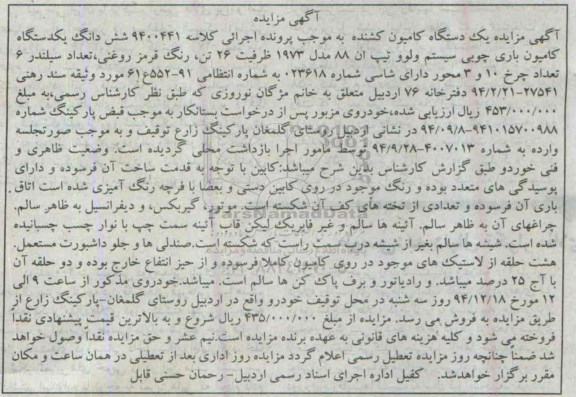 آگهی مزایده
آگهی مزایده یک دستگاه کامیون کشنده به موجب پرونده اجرائی کلاسه ۹۴۰۰۴۴۱ شش دانگ یکدستگاه
کامیون باری چوبی سیستم ولوو تیپ ان ۸۸ مدل ۱۹۷۳ ظرفیت ۲۶ تن، رنگ قرمز روغنی،تعداد سیلندر ۶
تعداد چرخ ۱۰ و ۳ محور دارای شاسی شماره ۰۲۳۶۱۸ به شماره انتظامی ۹۱-۵۵۲ع۶۱ مورد وثیقه سند رهنی
۲۷۵۴۱-۹۴/۲/۲۱ دفترخانه ۷۶ اردبیل متعلق به خانم مژگان نوروزی که طبق نظر کارشناس رسمی،به مبلغ
۴۵۳/۰۰۰/۰۰۰ ریال ارزیابی شده،خودروی مزبور پس از درخواست بستانکار به موجب قبض پارکینگ شماره
۹۴۱۰۱۵۷۰۰۹۸۸-۹۴/۰۹/۸ در نشانی اردبیل روستای گلمغان پارکینگ زارع توقیف و به موجب صورتجلسه
وارده به شماره ۴۰۰۷۰۱۳-۹۴/۹/۲۸ توسط مامور اجرا بازداشت محلی گردیده است. وضعیت ظاهری و
فنی خودرو طبق گزارش کارشناس بدین شرح میباشد:کابین با توجه به قدمت ساخت آن فرسوده و دارای
پوسیدگی های متعدد بوده و رنگ موجود در روی کابین دستی و بعضا با فرچه رنگ آمیزی شده است اتاق
باری آن فرسوده و تعدادی از تخته های کف آن شکسته است. موتور، گیربکس، و دیفرانسیل به ظاهر سالم.
چراغهای آن به ظاهر سالم. آئینه ها سالم و غیر فابریک لیکن قاب آئینه سمت چپ با نوار چسب چسبانیده
شده است. شیشه ها سالم بغیر از شیشه درب سمت راست که شکسته است.صندلی ها و جلو داشبورت مستعمل.
هشت حلقه از لاستیک های موجود در روی کامیون کاملا فرسوده و از حیز انتفاع خارج بوده و دو حلقه آن
با آج ۲۵ درصد میباشد. و رادیاتور و برف پاک کن ها سالم است. میباشد.خودروی مذکور از ساعت ۹ الی
۱۲ مورخ ۹۴/۱۲/۱۸ روز سه شنبه در محل توقیف خودرو واقع در اردبیل روستای گلمغان-پارکینگ زارع از
طریق مزایده به فروش می رسد. مزایده از مبلغ ۴۳۵/۰۰۰/۰۰۰ ریال شروع و به بالاترین قیمت پیشنهادی نقداً
فروخته می شود و کلیه هزینه های قانونی به عهده برنده مزایده است.نیم عشر و حق مزایده نقداً وصول خواهد
شد ضمناً چنانچه روز مزایده تعطیل رسمی اعلام گردد مزایده روز اداری بعد از تعطیلی در همان ساعت و مکان
مقرر برگزار خواهدشد. کفیل اداره اجرای اسناد رسمی اردبیل- رحمان حسنی قابل